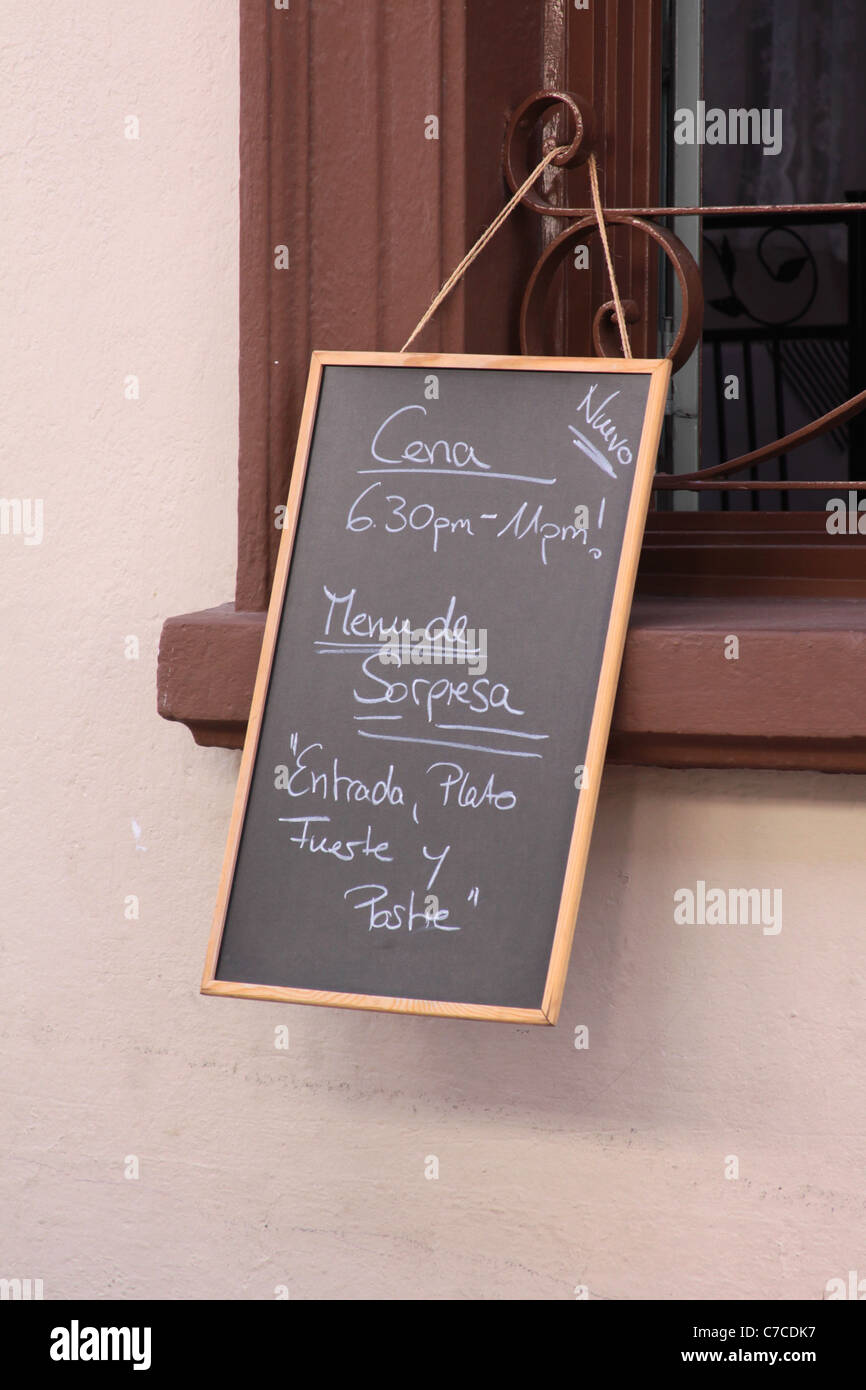 Nuevo
Cena
6.30pm - 11pm!
Menu de
Sorpresa
"Entrada, Plato
Fuerte y
Postre"
alamy
Image ID: C7CDK7
www.alamy.com